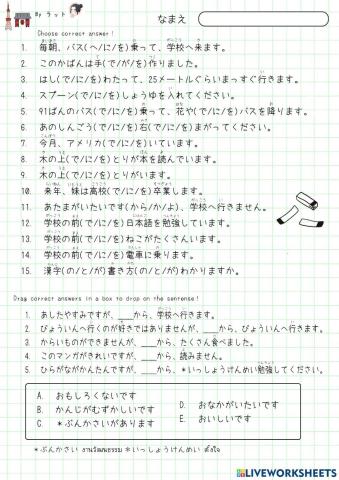 By ラット
なまえ
Choose correct answer!
1. 毎朝、バス(へ/に/を)乗って、学校へ来ます。
2. このかばんは手(で/が/を)作りました。
3. はし(で/に/を)わたって、25メートルぐらいまっすぐ行きます。
4. スプーン(で/に/を)しょうゆを入れてください。
5. 91ばんのバス(で/に/を)乗って、花や(で/に/を)バスを降ります。
6. あのしんごう(で/に/を)右(で/に/を)まがってください。
7. 今月、アメリカ(で/に/を)いています。
8. 木の上(で/に/を)とりが本を読んでいます。
9. 木の上(で/に/が)とりがいます。
10. 来年、妹は高校(で/に/を)卒業します。
11. あたまがいたいです(から/か/よ)、学校へ行きません。
12. 学校の前(で/に/を)日本語を勉強しています。
13. 学校の前(で/に/を)ねこがたくさんいます。
14. 学校の前(で/に/を)電車に乗ります。
15. 漢字(の/と/が)書き方(の/と/が)わかりますか。
Drag correct answers in a box to drop on the sentense!
1. あしたやすみですが、___から、学校へ行きます。
2. びょういんへ行くのが好きではありませんが、___から、びょういんへ行きます。
3. からいものができませんが、___から、たくさん食べました。
4. このマンガがきれいですが、___から、読みません。
5. ひらがながかんたんですが、___から、*いっしょうけんめい勉強してください。
A. おもしろくないです
B. かんじがむずかしいです
C. *ぶんかさいがあります
D. おなかがいたいです
E. おいしいです
*ぶんかさい งานวัฒนธรรม *いっしょうけんめい ตั้งใจ
LIVEWORKSHEETS